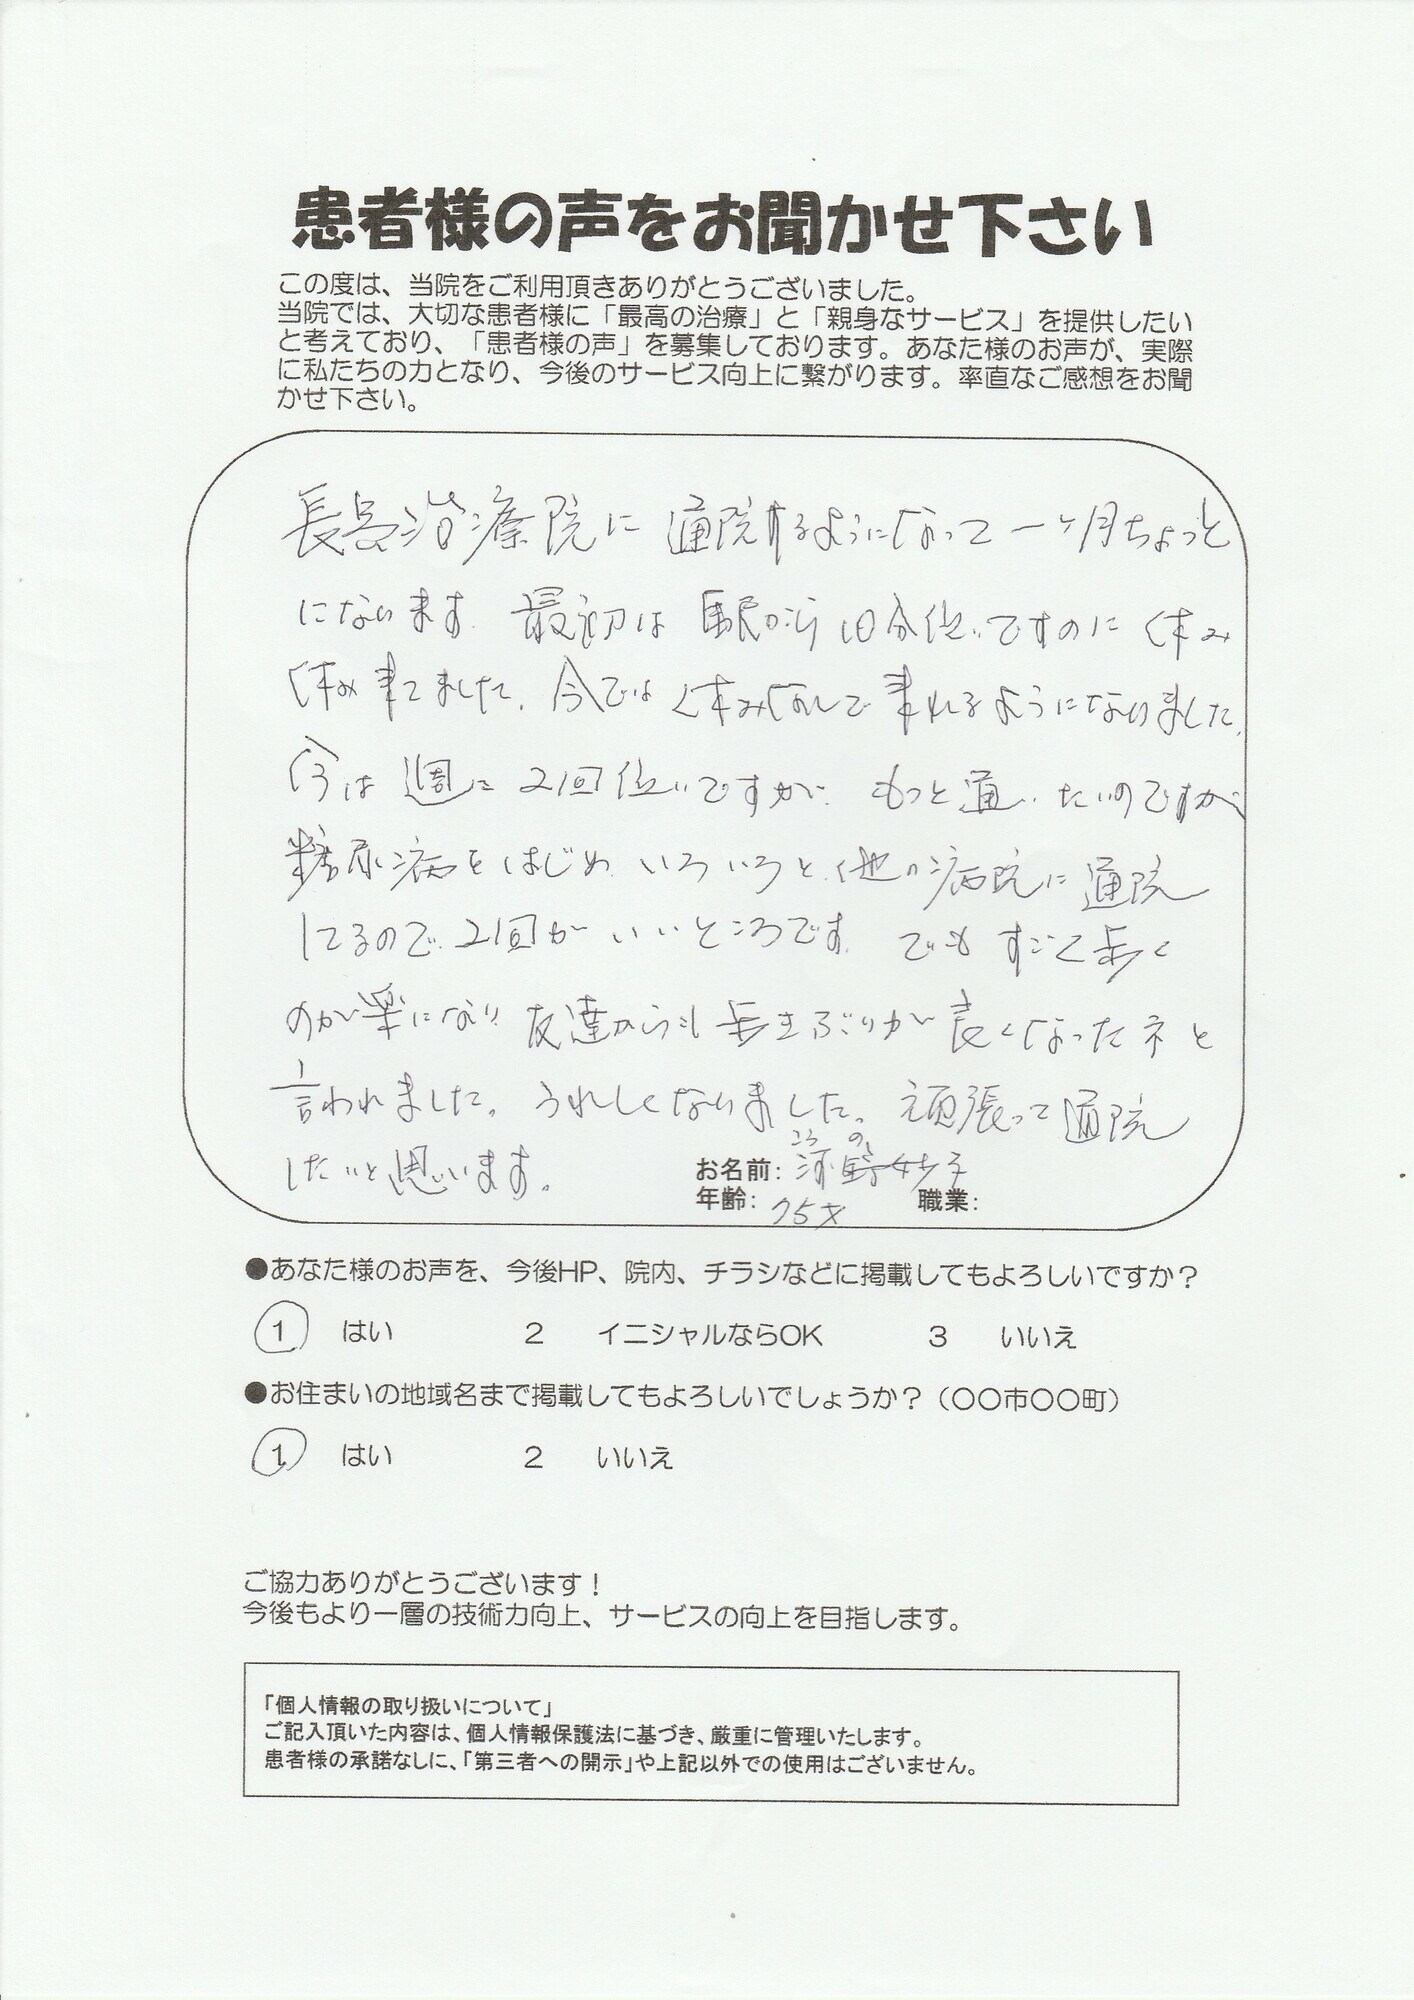 患者様の声をお聞かせ下さい
この度は、当院をご利用頂きありがとうございました。
当院では、大切な患者様に「最高の治療」と「親身なサービス」を提供したい
と考えており、「患者様の声」を募集しております。あなた様のお声が、実際
に私たちの力となり、今後のサービス向上に繋がります。率直なご感想をお聞
かせ下さい。
長島治療院に通院するようになって一ヶ月ちょっと
になります 最初は駅から10分位いですのに休み
休み来てました。今では休みなしで来れるようになりました。
今は週に2回位いですが もっと通いたいのですが
糖尿病をはじめいろいろと他の病院に通院
してるので2回がいいところです。でもすごく歩く
のが楽になり 友達からも歩きぶりが良くなったネと
言われました。うれしくなりました。頑張って通院
したいと思います。
こうの
お名前: 河野妙子
年齢: 75才 職業:
●あなた様のお声を、今後HP、院内、チラシなどに掲載してもよろしいですか？
1 はい 2 イニシャルならOK 3 いいえ
●お住まいの地域名まで掲載してもよろしいでしょうか？（〇〇市〇〇町）
1 はい 2 いいえ
ご協力ありがとうございます！
今後もより一層の技術力向上、サービスの向上を目指します。
「個人情報の取り扱いについて」
ご記入頂いた内容は、個人情報保護法に基づき、厳重に管理いたします。
患者様の承諾なしに、「第三者への開示」や上記以外での使用はございません。